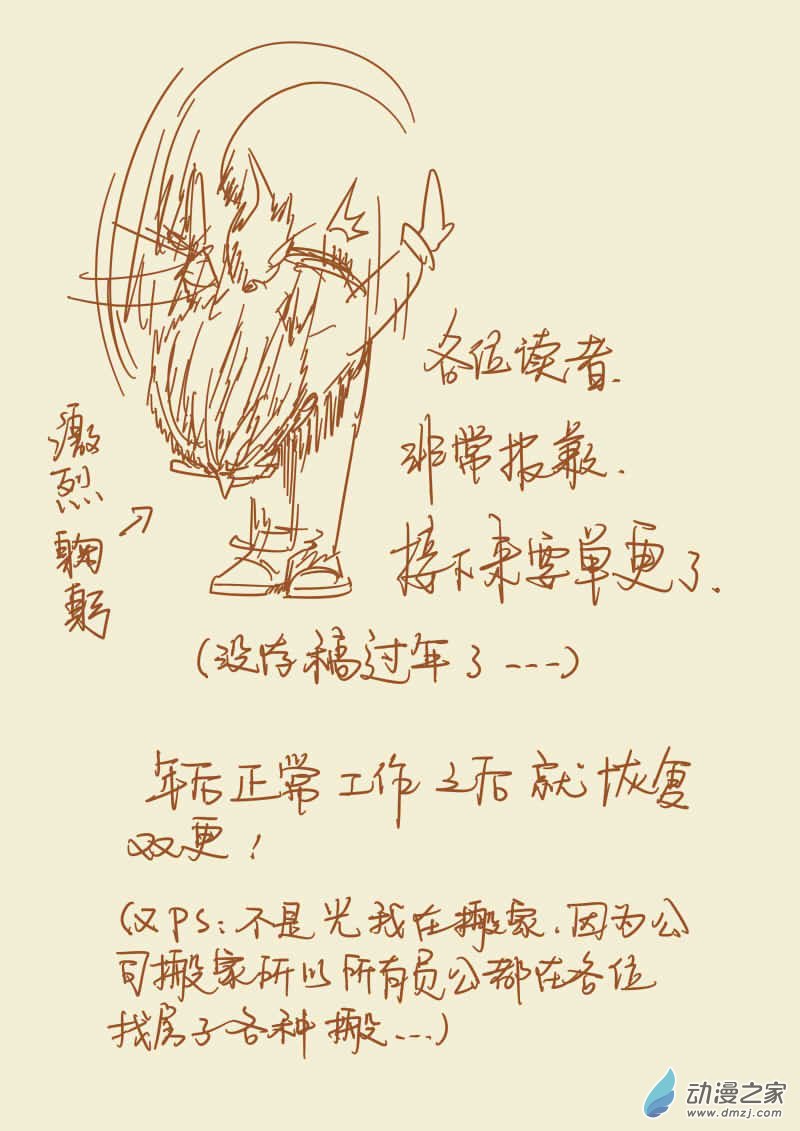 各位读者.
非常报歉.
接下来要单更了.
激烈鞠躬
(没存稿过年了----)
年后正常工作之后就恢复
双更!
(又PS:不是光我在搬家.因为公
司搬家所以所有员公都在各位
找房子各种搬....)
动漫之家
www.dmzj.com